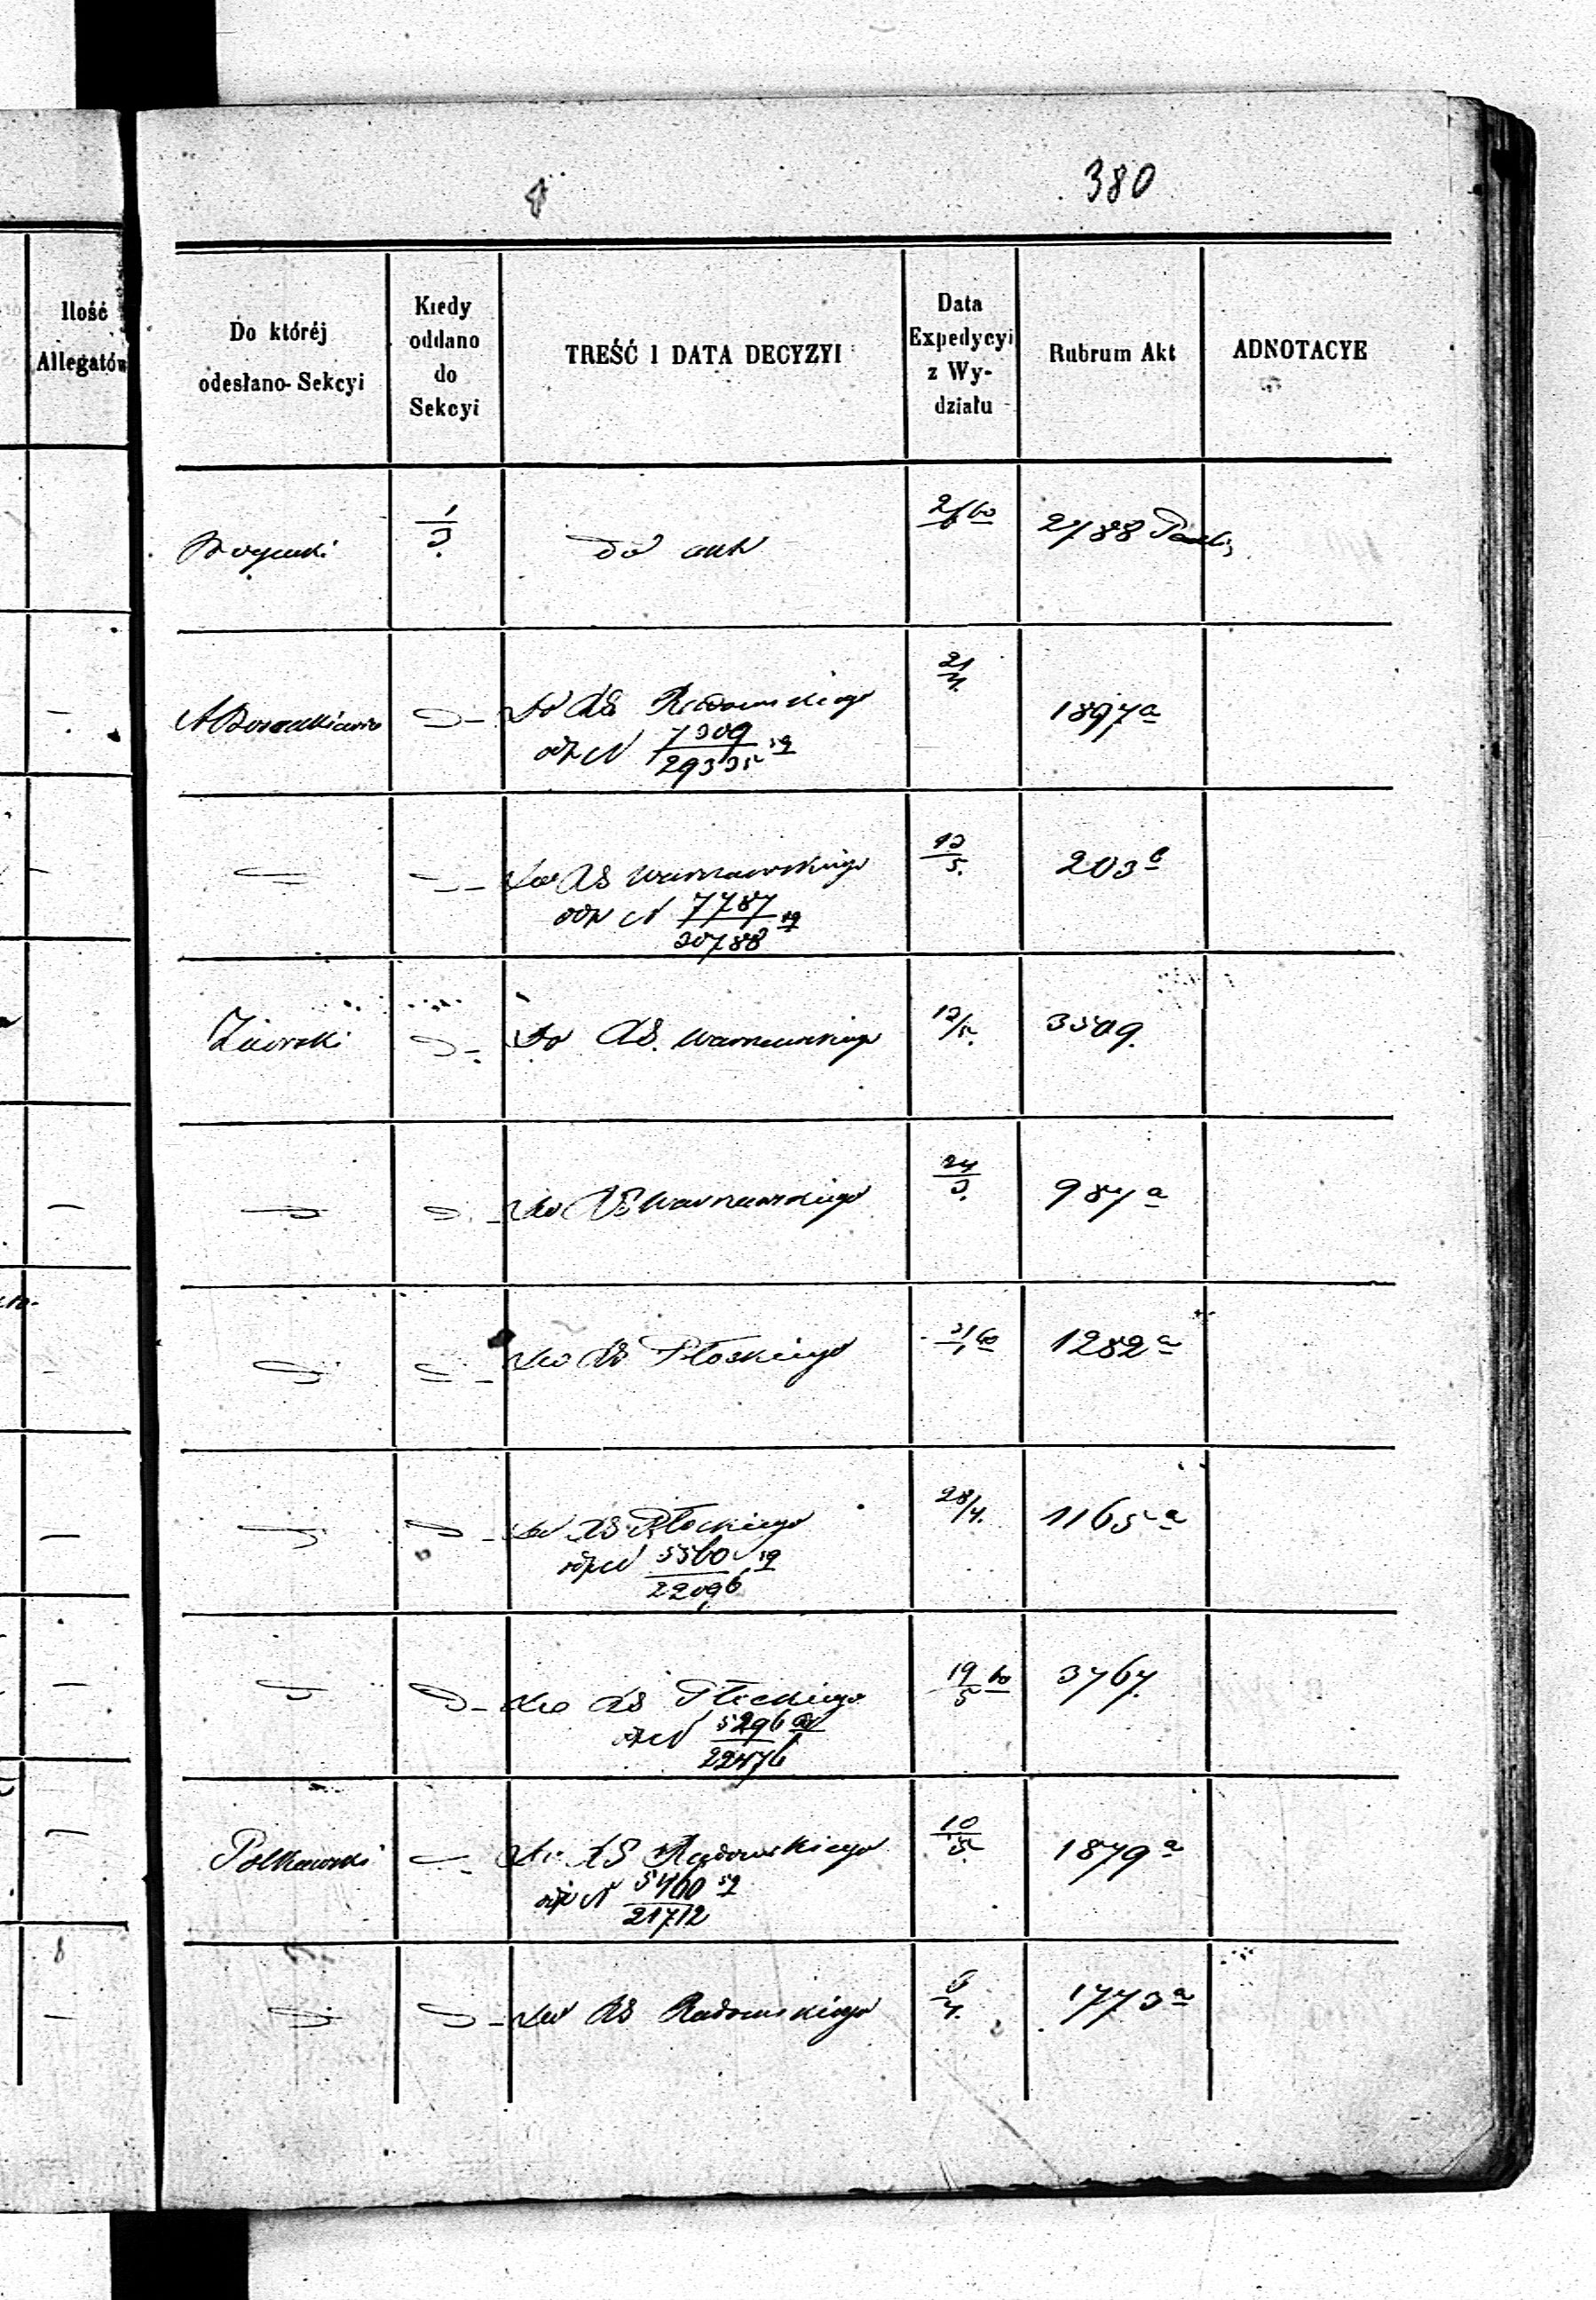 380
Ilość
Allegatów
Do któréj
odesłano Sekcyi
Kiedy
oddano
do
Sekcyi
TREŚĆ I DATA DECYZYI
Data
Expedycyi
z Wy-
działu
Rubrum Akt
ADNOTACYE
1/3
do akt
2/6 60
2788
do RG Radomskiego
odp N 7309/29335 59
21/4
1897 a
do RG Warszawskiego
odp N 7787/30788 59
12/5
203 b
do RG Warszawskiego
12/5
3509
do RG Warszawskiego
24/3
987 a
do RG Płockiego
1282 a
do RG Płockiego
odp N 5560/22096 59
28/4
1165 a
do RG Płockiego
odp N 5296/22476
19/5 60
3767
Polkowski
do RG Radomskiego
odp N 5460/21712 59
10/5
1879 a
8
do RG Radomskiego
6/4
1773 a